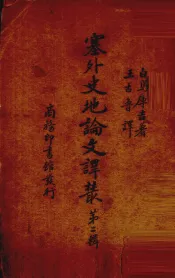 白鳥庫吉著
王古魯譯
塞外史地論文譯叢 第二輯
商務印書館發行